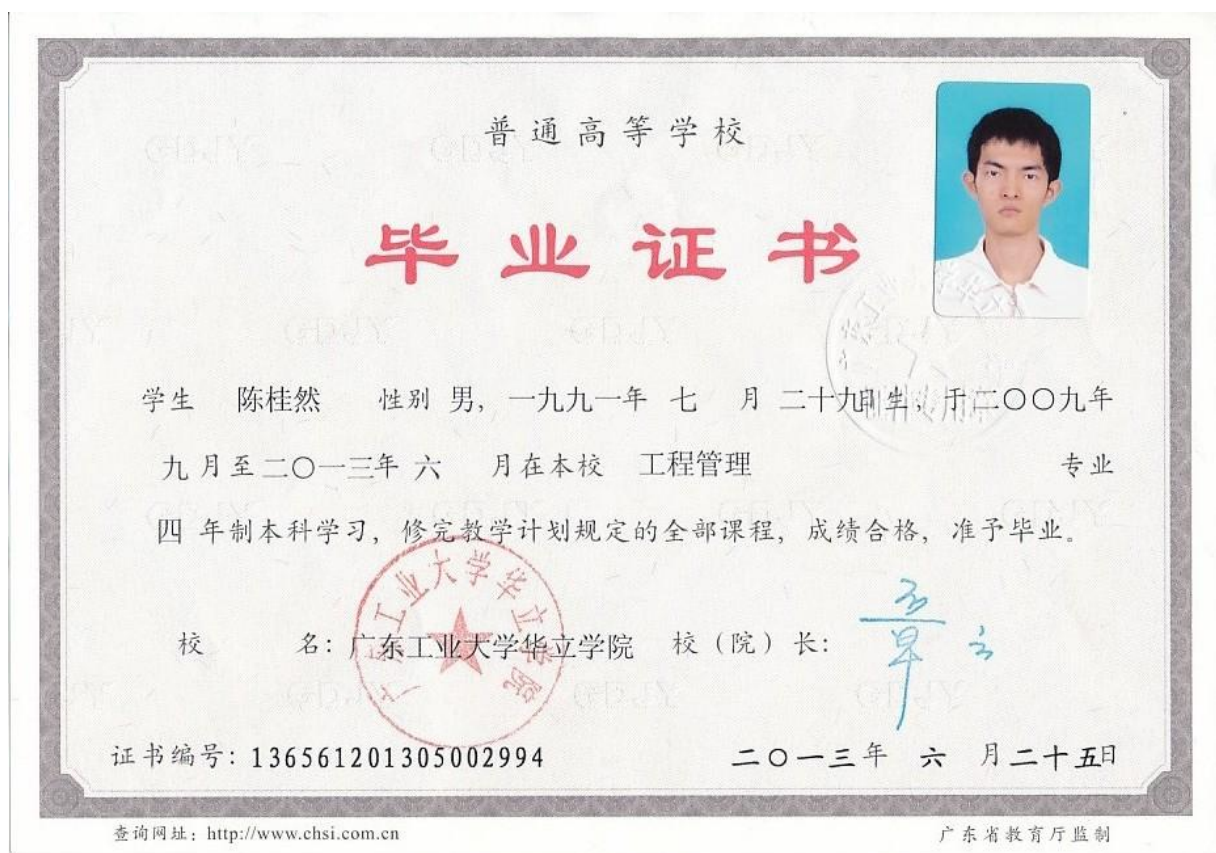 普通高等学校
毕业证书
学生 陈桂然 性别 男，一九九一年 七 月 二十九日生，于二〇〇九年
九 月至二〇一三年 六 月在本校 工程管理 专业
四 年制本科学习，修完教学计划规定的全部课程，成绩合格，准予毕业。
广东工业大学华立学院
校 名：广东工业大学华立学院 校（院）长：
证书编号：136561201305002994 二〇一三年 六 月二十五日
查询网址：http://www.chsi.com.cn 广东省教育厅监制